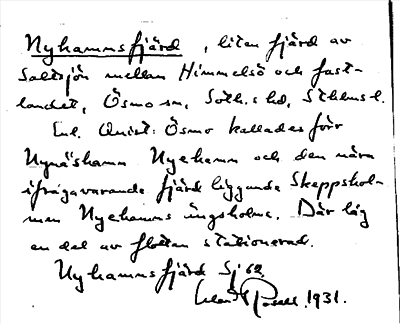 Nyhamnsfjärd, liten fjärd av
Saltsjön mellan Himmelsö och fast-
landet, Ösmo sn, Soth.s hd, Sthlms l.
Enl. Quist: Ösmo kallades förr
Nynäshamn Nyehamn och den nära
ifrågavarande fjärd liggande Skeppshol-
men Nyehamns ängsholme. Där låg
en del av flottan stationerad.
Nyhamnsfjärd Sj 62
1931.